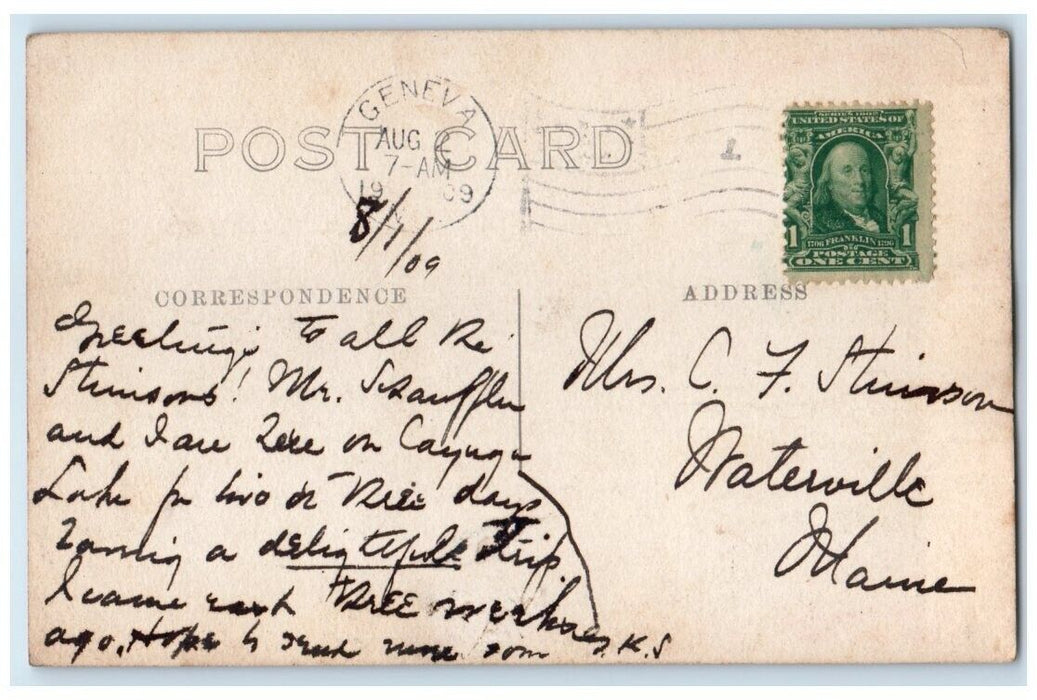 GENEVA
AUG
7-AM
19 09
POST CARD
1
SERIES 1902
UNITED STATES OF
AMERICA
1 1706 FRANKLIN 1790 1
POSTAGE
ONE CENT
8/1/09
CORRESPONDENCE
Greetings to all the
Stinsons! Mr. Schauffler
and I are here on Cayuga
Lake for two or three days
having a delightful trip.
I came east three weeks
ago. Hope to send some
J.K.S
ADDRESS
Mrs. C. F. Stinson
Waterville
Maine